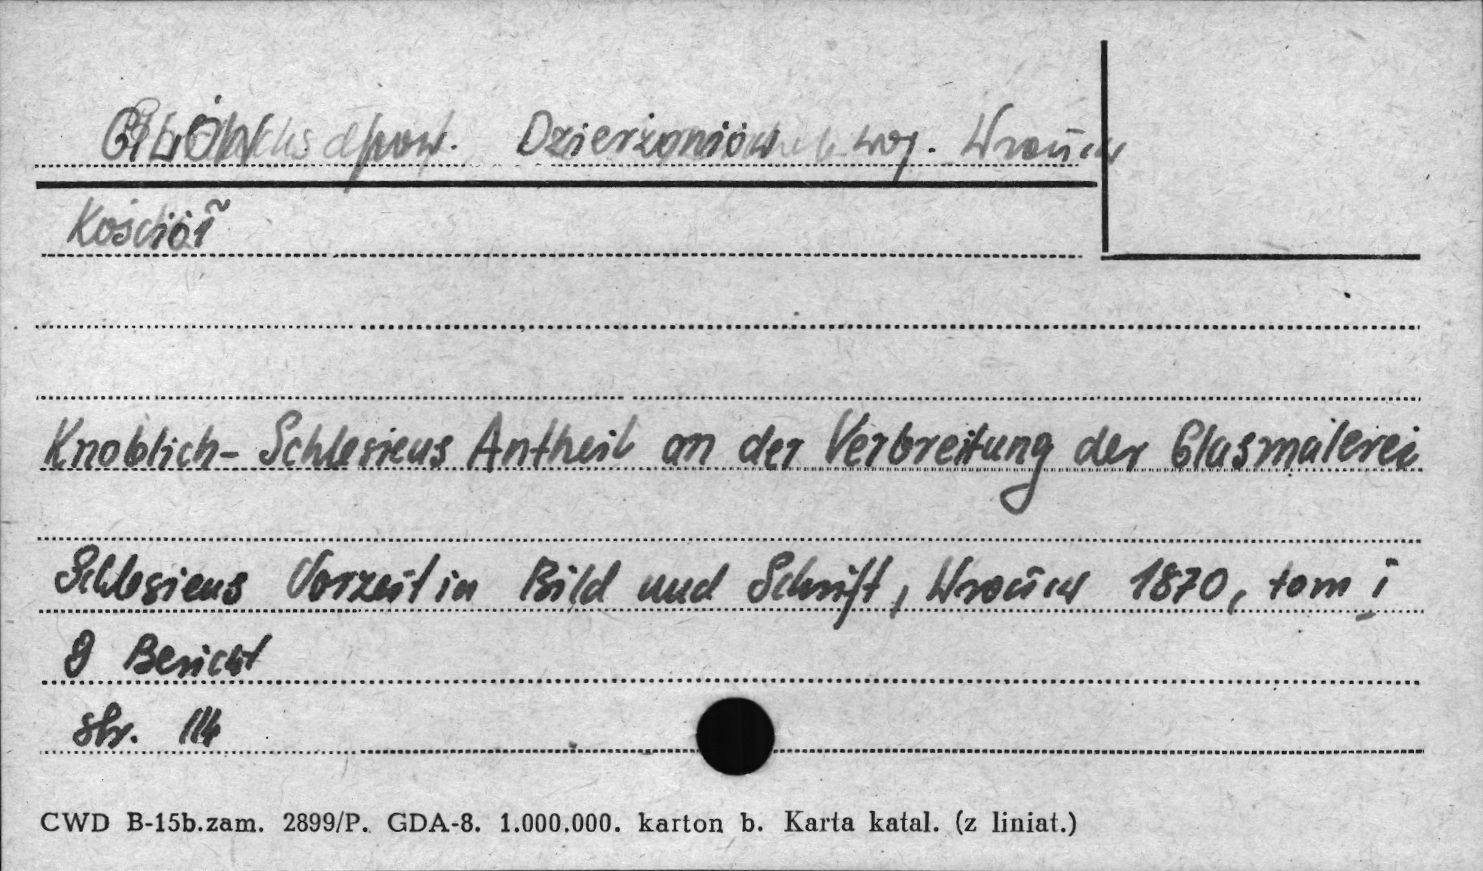 pow. Dzierżoniów woj. Wrocław
Kościół
Knoblich- Schlesiens Antheil an der Verbreitung der Glasmalerei
Schlesiens Vorzeit in Bild und Schrift, Wrocław 1870, tom I
9 Bericht
str. 114
CWD B-15b.zam. 2899/P. GDA-8. 1.000.000. karton b. Karta katal. (z liniat.)